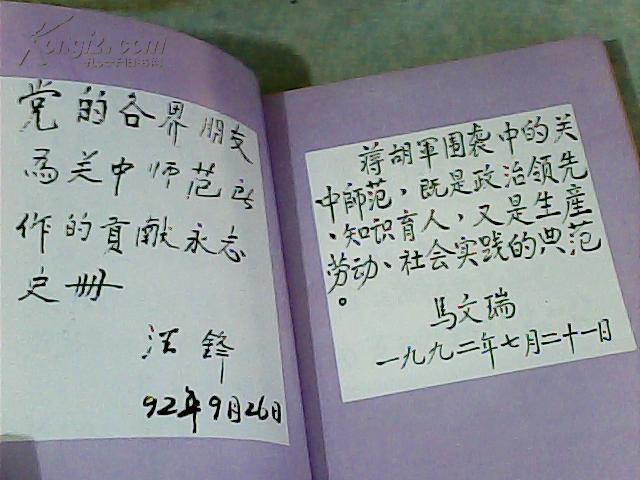 Kongfz.com
孔夫子旧书网
党的各界朋友
为关中师范所
作的貢献永志
史册
汪锋
92年9月26日
蒋胡軍围袭中的关
中師范，既是政治领先
、知识育人，又是生產
劳动、社会实践的典范
。
馬文瑞
一九九二年七月二十一日